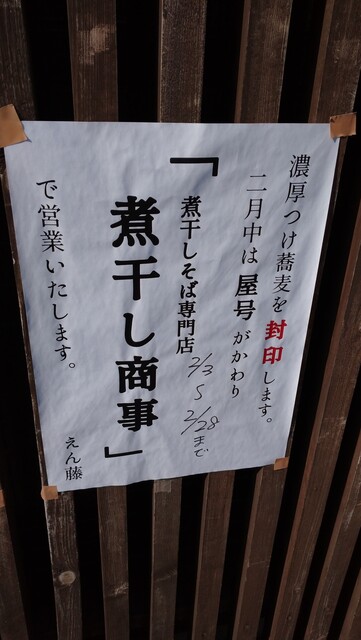 濃厚つけ蕎麦を封印します。
二月中は屋号がかわり
「煮干しそば専門店
2/3〜2/28まで
煮干し商事」
で営業いたします。
えん藤